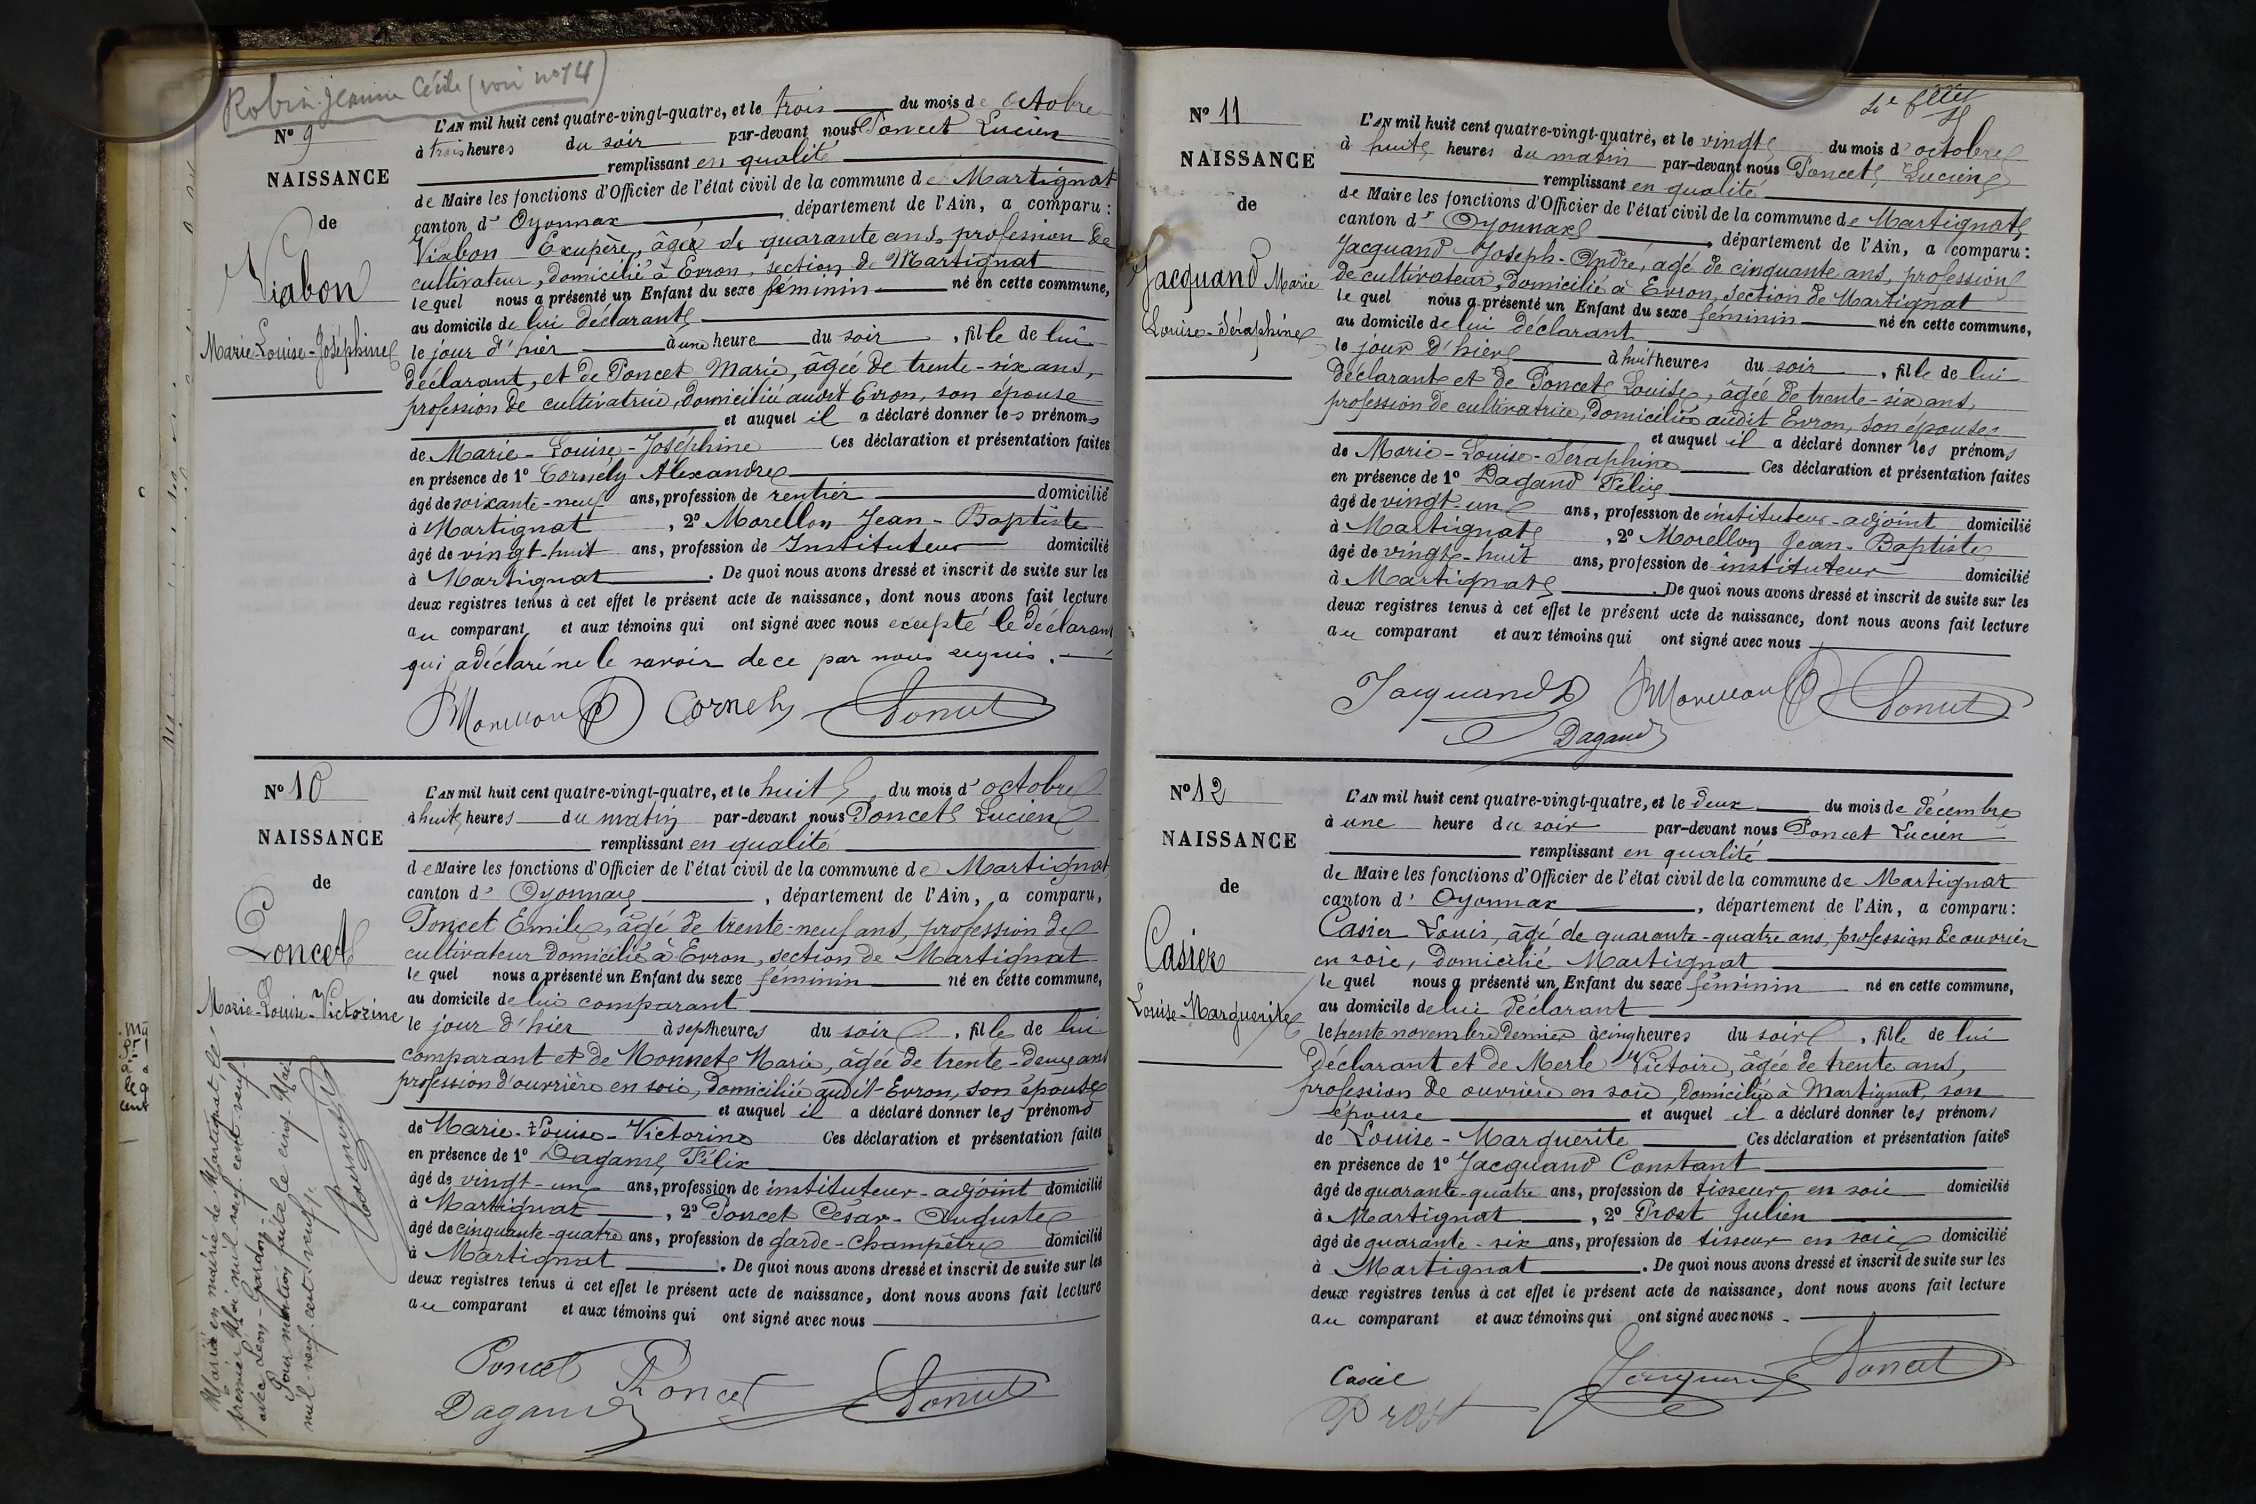 Robin Jeanne Cécile (voir n° 14)
N° 9
NAISSANCE
de
Viabon
Marie-Louise-Joséphine
L'AN mil huit cent quatre-vingt-quatre, et le trois du mois de octobre
à trois heures du soir par-devant nous Poncet Lucien
remplissant en qualité
de Maire les fonctions d'Officier de l'état civil de la commune de Martignat
canton d' Oyonnax, département de l'Ain, a comparu :
Viabon Exupère, âgé de quarante ans, profession de
cultivateur, domicilié à Evron, section de Martignat
lequel nous a présenté un Enfant du sexe féminin né en cette commune,
au domicile de lui déclarant
le jour d'hier à une heure du soir, fille de lui
déclarant, et de Poncet Marie, âgée de trente-six ans,
profession de cultivatrice, domiciliée audit Evron, son épouse
et auquel il a déclaré donner les prénoms
de Marie-Louise-Joséphine Ces déclaration et présentation faites
en présence de 1° Cornely Alexandre
âgé de soixante-neuf ans, profession de rentier domicilié
à Martignat, 2° Morellon Jean-Baptiste
âgé de vingt-huit ans, profession de Instituteur domicilié
à Martignat. De quoi nous avons dressé et inscrit de suite sur les
deux registres tenus à cet effet le présent acte de naissance, dont nous avons fait lecture
au comparant et aux témoins qui ont signé avec nous excepté le déclarant
qui a déclaré ne le savoir de ce par nous requis.
Morellon Cornely Poncet
N° 10
NAISSANCE
de
Poncet
Marie-Louise-Victorine
Mariée en mairie de Martignat le
premier Mai mil neuf cent neuf
avec Léon
Pour mention faite le cinq Mai
mil-neuf-cent-neuf.
L'AN mil huit cent quatre-vingt-quatre, et le huit du mois d'octobre
à huit heures du matin par-devant nous Poncet Lucien
remplissant en qualité
de Maire les fonctions d'Officier de l'état civil de la commune de Martignat
canton d' Oyonnax, département de l'Ain, a comparu,
Poncet Emile, âgé de trente-neuf ans, profession de
cultivateur domicilié à Evron, section de Martignat
le quel nous a présenté un Enfant du sexe féminin né en cette commune,
au domicile de lui comparant
le jour d'hier à sept heures du soir, fille de lui
comparant et de Monnet Marie, âgée de trente-deux ans
profession d'ouvrière en soie, domiciliée audit Evron, son épouse
et auquel il a déclaré donner les prénoms
de Marie-Louise-Victorine Ces déclaration et présentation faites
en présence de 1° Dagand Félix
âgé de vingt-un ans, profession de instituteur-adjoint domicilié
à Martignat, 2° Poncet César-Auguste
âgé de cinquante-quatre ans, profession de garde-champêtre domicilié
à Martignat. De quoi nous avons dressé et inscrit de suite sur les
deux registres tenus à cet effet le présent acte de naissance, dont nous avons fait lecture
au comparant et aux témoins qui ont signé avec nous
Poncet Poncet Poncet
Dagand
N° 11
NAISSANCE
de
Jacquand Marie
Louise-Séraphine
L'AN mil huit cent quatre-vingt-quatre, et le vingt du mois d'octobre
à huit heures du matin par-devant nous Poncet Lucien
remplissant en qualité
de Maire les fonctions d'Officier de l'état civil de la commune de Martignat
canton d' Oyonnax, département de l'Ain, a comparu :
Jacquand Joseph-André, agé de cinquante ans, profession
de cultivateur, domicilié à Evron, section de Martignat
le quel nous a présenté un Enfant du sexe féminin né en cette commune,
au domicile de lui déclarant
le jour d'hier à huit heures du soir, fille de lui
déclarant et de Poncet Louise, âgée de trente-six ans,
profession de cultivatrice, domiciliée audit Evron, son épouse
et auquel il a déclaré donner les prénoms
de Marie-Louise-Séraphine Ces déclaration et présentation faites
en présence de 1° Dagand Félix
âgé de vingt-un ans, profession de instituteur-adjoint domicilié
à Martignat, 2° Morellon Jean-Baptiste
âgé de vingt-huit ans, profession de instituteur domicilié
à Martignat. De quoi nous avons dressé et inscrit de suite sur les
deux registres tenus à cet effet le présent acte de naissance, dont nous avons fait lecture
au comparant et aux témoins qui ont signé avec nous
Jacquand Morellon Poncet
Dagand
N° 12
NAISSANCE
de
Casier
Louise-Marguerite
L'AN mil huit cent quatre-vingt-quatre, et le deux du mois de décembre
à une heure du soir par-devant nous Poncet Lucien
remplissant en qualité
de Maire les fonctions d'Officier de l'état civil de la commune de Martignat
canton d' Oyonnax, département de l'Ain, a comparu :
Casier Louis, âgé de quarante-quatre ans, profession de ouvrier
en soie, domicilié Martignat
le quel nous a présenté un Enfant du sexe féminin né en cette commune,
au domicile de lui déclarant
le trente novembre dernier à cinq heures du soir, fille de lui
déclarant et de Merle Victoire, âgée de trente ans,
profession de ouvrière en soie, domiciliée à Martignat, son
épouse et auquel il a déclaré donner les prénoms
de Louise-Marguerite Ces déclaration et présentation faites
en présence de 1° Jacquand Constant
âgé de quarante-quatre ans, profession de tisseur en soie domicilié
à Martignat, 2° Prost Julien
âgé de quarante-six ans, profession de tisseur en soie domicilié
à Martignat. De quoi nous avons dressé et inscrit de suite sur les
deux registres tenus à cet effet le présent acte de naissance, dont nous avons fait lecture
au comparant et aux témoins qui ont signé avec nous
Casier Jacquand Poncet
Prost